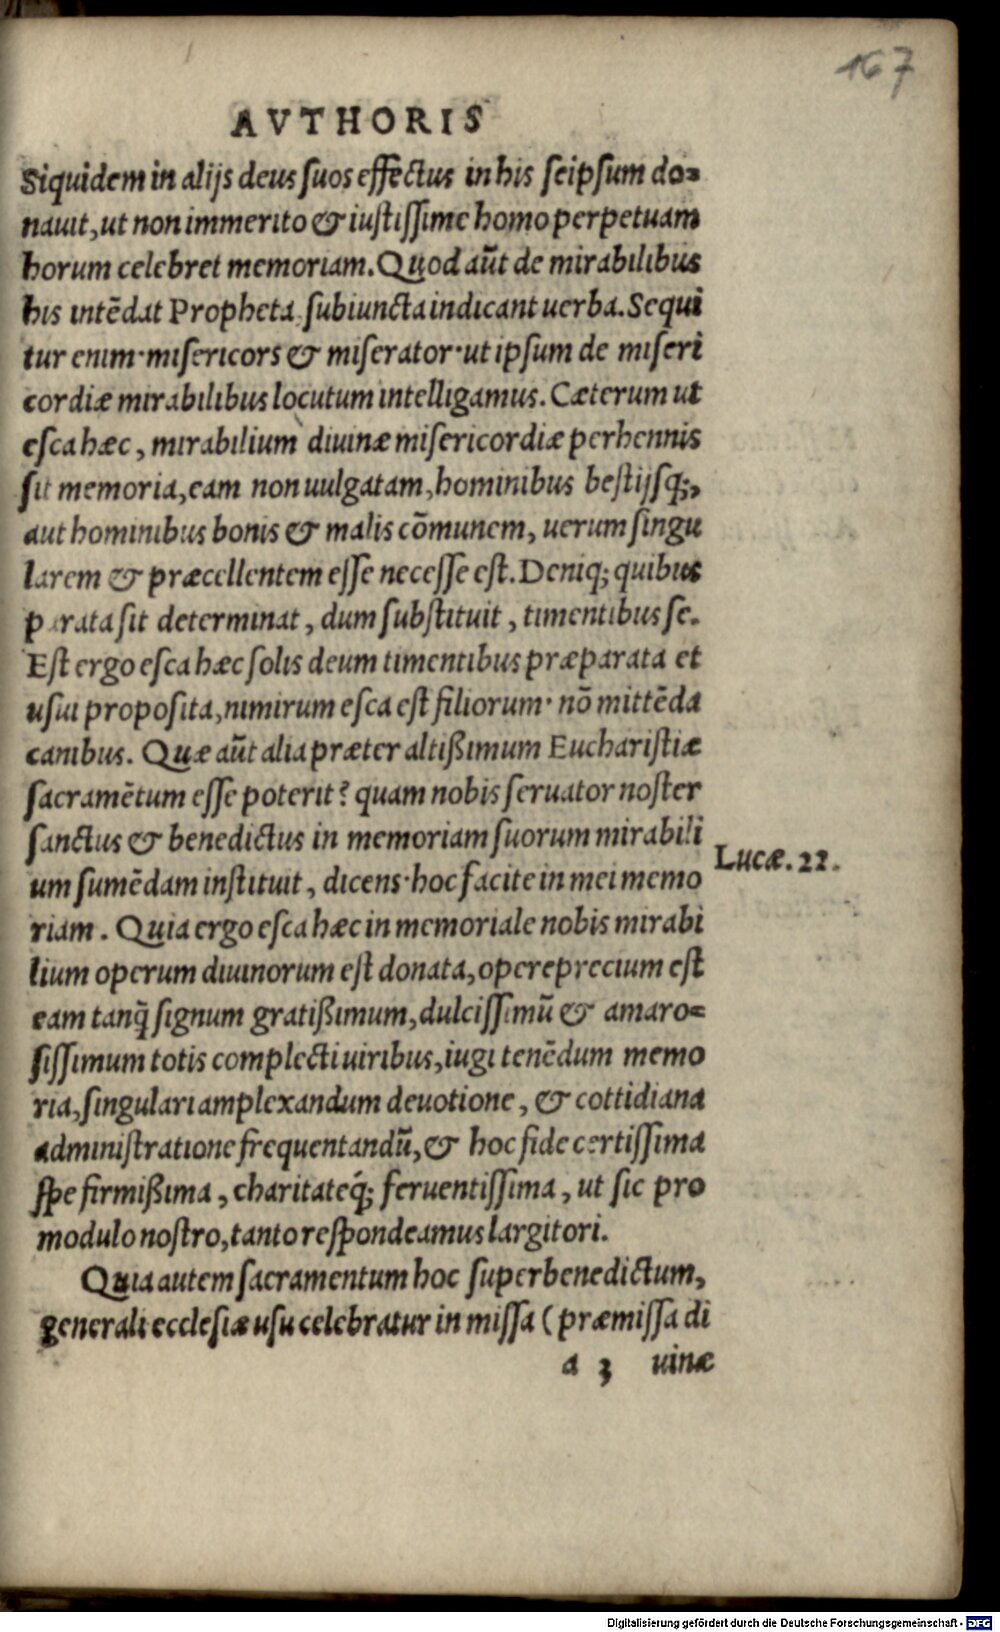 167
AVTHORIS
Siquidem in alijs deus suos effectus in his seipsum do=
nauit, ut non immerito & iustissime homo perpetuam
horum celebret memoriam. Quod aūt de mirabilibus
his intēdat Propheta subiuncta indicant uerba. Sequi
tur enim·misericors & miserator·ut ipsum de miseri
cordiæ mirabilibus locutum intelligamus. Cæterum ut
esca hæc, mirabilium diuinæ misericordiæ perhennis
sit memoria, eam non uulgatam, hominibus bestijsq;,
aut hominibus bonis & malis cōmunem, uerum singu
larem & præcellentem esse necesse est. Deniq; quibus
parata sit determinat, dum substituit, timentibus se.
Est ergo esca hæc solis deum timentibus præparata et
usui proposita, nimirum esca est filiorum· nō mittēda
canibus. Quæ aūt alia præter altißimum Eucharistiæ
sacramētum esse poterit? quam nobis seruator noster
sanctus & benedictus in memoriam suorum mirabili
um sumēdam instituit, dicens·hoc facite in mei memo
riam. Quia ergo esca hæc in memoriale nobis mirabi
lium operum diuinorum est donata, opereprecium est
eam tanq̃ signum gratißimum, dulcissimū & amaro=
sissimum totis complecti uiribus, iugi tenēdum memo
ria, singulari amplexandum deuotione, & cottidiana
administratione frequentandū, & hoc fide certissima
spe firmißima, charitateq́; feruentissima, ut sic pro
modulo nostro, tanto respondeamus largitori.
Quia autem sacramentum hoc superbenedictum,
generali ecclesiæ usu celebratur in missa (præmissa di
a 3 uinæ
Lucæ. 22.
Digitalisierung gefördert durch die Deutsche Forschungsgemeinschaft - DFG